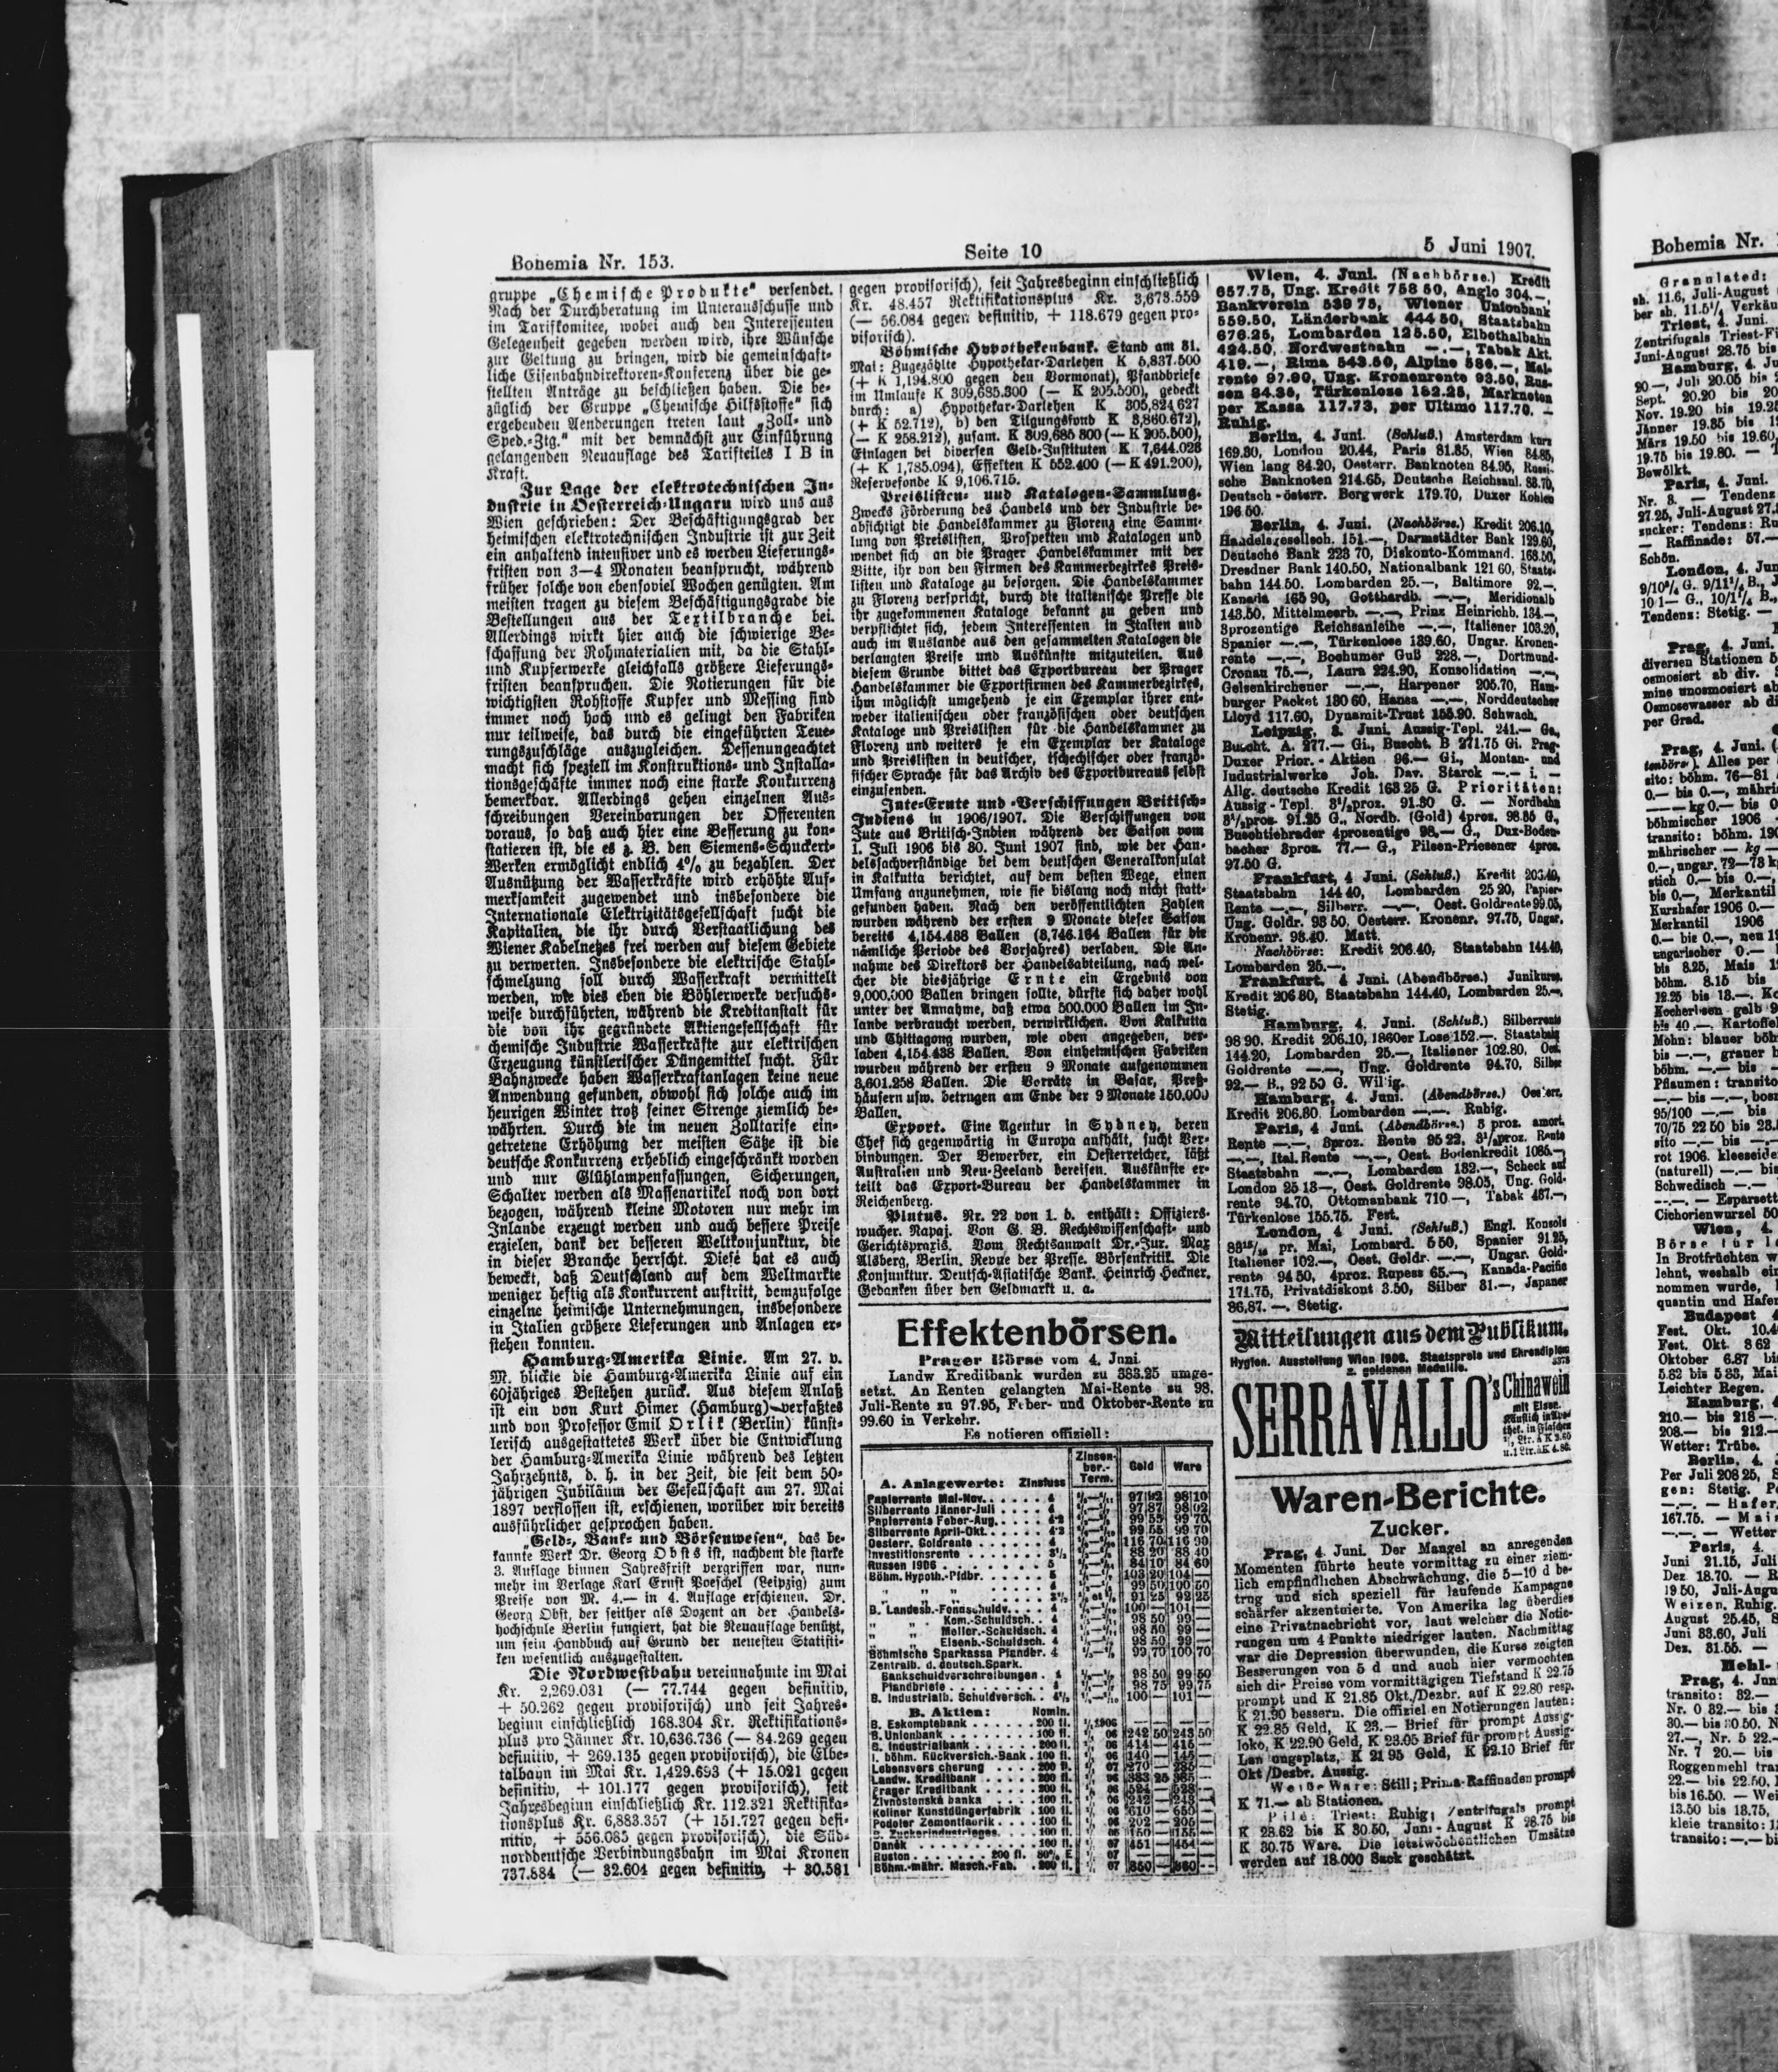 Bohemia Nr. 153.
Seite 10
5 Juni 1907.
gruppe „Chemische Produkte“ versendet.
Nach der Durchberatung im Unterausschusse und
im Tarifkomitee, wobei auch den Interessenten
Gelegenheit gegeben werden wird, ihre Wünsche
zur Geltung zu bringen, wird die gemeinschaft-
liche Eisenbahndirektoren-Konferenz über die ge-
stellten Anträge zu beschließen haben. Die be-
züglich der Gruppe „Chemische Hilfsstoffe“ sich
ergebenden Aenderungen treten laut „Zoll- und
Sped.-Ztg.“ mit der demnächst zur Einführung
gelangenden Neuauflage des Tarifteiles I B in
Kraft.
Zur Lage der elektrotechnischen In-
dustrie in Oesterreich-Ungarn wird uns aus
Wien geschrieben: Der Beschäftigungsgrad der
heimischen elektrotechnischen Industrie ist zur Zeit
ein anhaltend intensiver und es werden Lieferungs-
fristen von 3—4 Monaten beansprucht, während
früher solche von ebensoviel Wochen genügten. Am
meisten tragen zu diesem Beschäftigungsgrade die
Bestellungen aus der Textilbranche bei.
Allerdings wirkt hier auch die schwierige Be-
schaffung der Rohmaterialien mit, da die Stahl-
und Kupferwerke gleichfalls größere Lieferungs-
fristen beanspruchen. Die Notierungen für die
wichtigsten Rohstoffe Kupfer und Messing sind
immer noch hoch und es gelingt den Fabriken
nur teilweise, das durch die eingeführten Teue-
rungszuschläge auszugleichen. Dessenungeachtet
macht sich speziell im Konstruktions- und Installa-
tionsgeschäfte immer noch eine starke Konkurrenz
bemerkbar. Allerdings gehen einzelnen Aus-
schreibungen Vereinbarungen der Offerenten
voraus, so daß auch hier eine Besserung zu kon-
statieren ist, die es z. B. den Siemens-Schuckert-
Werken ermöglicht endlich 4% zu bezahlen. Der
Ausnützung der Wasserkräfte wird erhöhte Auf-
merksamkeit zugewendet und insbesondere die
Internationale Elektrizitätsgesellschaft sucht die
Kapitalien, die ihr durch Verstaatlichung des
Wiener Kabelnetzes frei werden auf diesem Gebiete
zu verwerten. Insbesondere die elektrische Stahl-
schmelzung soll durch Wasserkraft vermittelt
werden, wie dies eben die Böhlerwerke versuchs-
weise durchführten, während die Kreditanstalt für
die von ihr gegründete Aktiengesellschaft für
chemische Industrie Wasserkräfte zur elektrischen
Erzeugung künstlerischer Düngemittel sucht. Für
Bahnzwecke haben Wasserkraftanlagen keine neue
Anwendung gefunden, obwohl sich solche auch im
heurigen Winter trotz seiner Strenge ziemlich be-
währten. Durch die im neuen Zolltarife ein-
getretene Erhöhung der meisten Sätze ist die
deutsche Konkurrenz erheblich eingeschränkt worden
und nur Glühlampenfassungen, Sicherungen,
Schalter werden als Massenartikel noch von dort
bezogen, während kleine Motoren nur mehr im
Inlande erzeugt werden und auch bessere Preise
erzielen, dank der besseren Weltkonjunktur, die
in dieser Branche herrscht. Diese hat es auch
beweckt, daß Deutschland auf dem Weltmarkte
weniger heftig als Konkurrent auftritt, demzufolge
einzelne heimische Unternehmungen, insbesondere
in Italien größere Lieferungen und Anlagen er-
stehen konnten.
Hamburg-Amerika Linie. Am 27. v.
M. blickte die Hamburg-Amerika Linie auf ein
60jähriges Bestehen zurück. Aus diesem Anlaß
ist ein von Kurt Himer (Hamburg) verfaßtes
und von Professor Emil Orlik (Berlin) künst-
lerisch ausgestattetes Werk über die Entwicklung
der Hamburg-Amerika Linie während des letzten
Jahrzehnts, d. h. in der Zeit, die seit dem 50-
jährigen Jubiläum der Gesellschaft am 27. Mai
1897 verflossen ist, erschienen, worüber wir bereits
ausführlicher gesprochen haben.
„Geld-, Bank- und Börsenwesen“, das be-
kannte Werk Dr. Georg Obsts ist, nachdem die starke
3. Auflage binnen Jahresfrist vergriffen war, nun-
mehr im Verlage Karl Ernst Poeschel (Leipzig) zum
Preise von M. 4.— in 4. Auflage erschienen. Dr.
Georg Obst, der seither als Dozent an der Handels-
hochschule Berlin fungiert, hat die Neuauflage benützt,
um sein Handbuch auf Grund der neuesten Statisti-
ken wesentlich auszugestalten.
Die Nordwestbahn vereinnahmte im Mai
Kr. 2,269.031 (— 77.744 gegen definitiv,
+ 50.262 gegen provisorisch) und seit Jahres-
beginn einschließlich 168.304 Kr. Rektifikations-
plus pro Jänner Kr. 10,636.736 (— 84.269 gegen
definitiv, + 269.135 gegen provisorisch), die Elbe-
talbahn im Mai Kr. 1,429.693 (+ 15.021 gegen
definitiv, + 101.177 gegen provisorisch), seit
Jahresbeginn einschließlich Kr. 112.321 Rektifika-
tionsplus Kr. 6,883.357 (+ 151.727 gegen defi-
nitiv, + 556.085 gegen provisorisch), die Süd-
norddeutsche Verbindungsbahn im Mai Kronen
737.884 (— 32.604 gegen definitiv, + 30.581
gegen provisorisch), seit Jahresbeginn einschließlich
Kr. 48.457 Rektifikationsplus Kr. 3,673.559
(— 56.084 gegen definitiv, + 118.679 gegen pro-
visorisch).
Böhmische Hypothekenbank. Stand am 31.
Mai: Zugezählte Hypothekar-Darlehen K 5,837.500
(+ K 1,194.800 gegen den Vormonat), Pfandbriefe
im Umlaufe K 309,685.300 (— K 205.500), gedeckt
durch: a) Hypothekar-Darlehen K 305,824.627
(+ K 52.712), b) den Tilgungsfond K 3,860.672),
(— K 258.212), zusam. K 309,685 300 (— K 205.500),
Einlagen bei diversen Geld-Instituten K 7,644.028
(+ K 1,785.094), Effekten K 552.400 (— K 491.200),
Reservefonde K 9,106.715.
Preislisten- und Katalogen-Sammlung.
Zwecks Förderung des Handels und der Industrie be-
absichtigt die Handelskammer zu Florenz eine Samm-
lung von Preislisten, Prospekten und Katalogen und
wendet sich an die Prager Handelskammer mit der
Bitte, ihr von den Firmen des Kammerbezirkes Preis-
listen und Kataloge zu besorgen. Die Handelskammer
zu Florenz verspricht, durch die italienische Presse die
ihr zugekommenen Kataloge bekannt zu geben und
verpflichtet sich, jedem Interessenten in Italien und
auch im Auslande aus den gesammelten Katalogen die
verlangten Preise und Auskünfte mitzuteilen. Aus
diesem Grunde bittet das Exportbureau der Prager
Handelskammer die Exportfirmen des Kammerbezirkes,
ihm möglichst umgehend je ein Exemplar ihrer ent-
weder italienischen oder französischen oder deutschen
Kataloge und Preislisten für die Handelskammer zu
Florenz und weiters je ein Exemplar der Kataloge
und Preislisten in deutscher, tschechischer oder franzö-
sischer Sprache für das Archiv des Exportbureaus selbst
einzusenden.
Jute-Ernte und -Verschiffungen Britisch-
Indiens in 1906/1907. Die Verschiffungen von
Jute aus Britisch-Indien während der Saison vom
1. Juli 1906 bis 30. Juni 1907 sind, wie der Han-
delssachverständige bei dem deutschen Generalkonsulat
in Kalkutta berichtet, auf dem besten Wege, einen
Umfang anzunehmen, wie sie bislang noch nicht statt-
gefunden haben. Nach den veröffentlichten Zahlen
wurden während der ersten 9 Monate dieser Saison
bereits 4,154.438 Ballen (3,746.164 Ballen für die
nämliche Periode des Vorjahres) verladen. Die An-
nahme des Direktors der Handelsabteilung, nach wel-
cher die diesjährige Ernte ein Ergebnis von
9,000.000 Ballen bringen sollte, dürfte sich daher wohl
unter der Annahme, daß etwa 500.000 Ballen im In-
lande verbraucht werden, verwirklichen. Von Kalkutta
und Chittagong wurden, wie oben angegeben, ver-
laden 4,154.438 Ballen. Von einheimischen Fabriken
wurden während der ersten 9 Monate aufgenommen
3,601.258 Ballen. Die Vorräte in Basar, Preß-
häusern usw. betrugen am Ende der 9 Monate 150.000
Ballen.
Export. Eine Agentur in Sydney, deren
Chef sich gegenwärtig in Europa aufhält, sucht Ver-
bindungen. Der Bewerber, ein Oesterreicher, läßt
Australien und Neu-Zeeland bereisen. Auskünfte er-
teilt das Export-Bureau der Handelskammer in
Reichenberg.
Plutus. Nr. 22 von 1. d. enthält: Offiziers-
wucher. Rapaj. Von G. B. Rechtswissenschaft- und
Gerichtspraxis. Vom Rechtsanwalt Dr.-Jur. Max
Alsberg, Berlin. Revue der Presse. Börsenkritik. Die
Konjunktur. Deutsch-Asiatische Bank. Heinrich Heckner.
Gedanken über den Geldmarkt u. a.
Effektenbörsen.
Prager Börse vom 4. Juni
Landw Kreditbank wurden zu 383.25 umge-
setzt. An Renten gelangten Mai-Rente zu 98.
Juli-Rente zu 97.95, Feber- und Oktober-Rente zu
99.60 in Verkehr.
Es notieren offiziell:
A. Anlagewerte: Zinsfuss Zinsen-ber.-Term. Geld Ware
Papierrente Mai-Nov. 4 97 92 98 10
Silberrente Jänner-Juli 4 97 87 98 02
Papierrente Feber-Aug. 4·2 99 55 99 70
Silberrente April-Okt. 4·2 99 55 99 70
Oesterr. Goldrente 4 116 70 116 90
Investitionsrente 3½ 88 20 88 40
Russen 1906 5 84 10 84 60
Böhm. Hypoth.-Pfdbr. 5 103 20 104 —
„ „ 4 99 50 100 50
„ „ 3½ 91 25 92 25
B. Landesb.-Fonnschuldv. 4 100 — 101 —
„ „ Kom.-Schuldsch. 4 98 50 99 —
„ „ Melior.-Schuldsch. 4 98 50 99 —
„ „ Eisenb.-Schuldsch. 4 98 50 99 —
Böhmische Sparkassa Pfandbr. 4 99 70 100 70
Zentralb. d. deutsch. Spark.
Bankschuldverschreibungen 4 98 50 99 50
Pfandbriefe 4 98 75 99 75
B. Industrialb. Schuldversch. 4½ 100 — 101 —
B. Aktien: Nomin.
B. Eskomptebank 200 fl. — —
B. Unionbank 100 fl. 242 50 243 50
B. Industrialbank 200 fl. 414 — 415 —
I. böhm. Rückversich.-Bank 100 fl. 140 — 145 —
Lebensvers cherung 200 fl. 270 — 285 —
Landw. Kreditbank 200 fl. 383 25 385 —
Prager Kreditbank 200 fl. 524 — 528 —
Živnostenská banka 100 fl. 242 — 243 —
Koliner Kunstdüngerfabrik 100 fl. 610 — 650 —
Podoler Zementfabrik 100 fl. 202 — 205 —
B. Zuckerindustrieges. 100 fl. 150 — 155 —
Daněk 100 fl. 451 — 454 —
Ruston 200 fl. 80% E. — —
Böhm.-mähr. Masch.-Fab. 200 fl. 850 — 860 —
Wien, 4. Juni. (Nachbörse.) Kredit
657.75, Ung. Kredit 758 50, Anglo 304.—,
Bankverein 539 75, Wiener Unionbank
559.50, Länderbank 444 50, Staatsbahn
676.25, Lombarden 125.50, Elbethalbahn
424.50, Nordwestbahn —.—, Tabak Akt.
419.—, Rima 543.50, Alpine 586.—, Mai-
rente 97.90, Ung. Kronenrente 93.50, Rus-
sen 84.35, Türkenlose 182.25, Marknoten
per Kassa 117.73, per Ultimo 117.70. —
Ruhig.
Berlin, 4. Juni. (Schluß.) Amsterdam kurz
169.30, London 20.44, Paris 81.35, Wien 84.85,
Wien lang 84.20, Oesterr. Banknoten 84.95, Russi-
sche Banknoten 214.65, Deutsche Reichsanl. 83.70,
Deutsch-österr. Bergwerk 179.70, Duxer Kohlen
196.50.
Berlin, 4. Juni. (Nachbörse.) Kredit 206.10,
Handelsgesellsch. 151.—, Darmstädter Bank 129.60,
Deutsche Bank 223 70, Diskonto-Kommand. 168.50,
Dresdner Bank 140.50, Nationalbank 121 60, Staats-
bahn 144.50. Lombarden 25.—, Baltimore 92.—,
Kanada 165 90, Gotthardb. —.—, Meridionalb
143.50, Mittelmeerb. —.—, Prinz Heinrichb. 134.—,
3prozentige Reichsanleihe —.—, Italiener 103.20,
Spanier —.—, Türkenlose 139.60, Ungar. Kronen-
rente —.—, Bochumer Guß 228.—, Dortmund-
Cronau 75.—, Laura 224.90, Konsolidation —.—,
Gelsenkirchener —.—, Harpener 205.70, Ham-
burger Packet 130 60, Hansa —.—, Norddeutscher
Lloyd 117.60, Dynamit-Trust 155.90. Schwach.
Leipzig, 3. Juni. Aussig-Tepl. 241.— Ge,
Buscht. A. 277.— Gi., Buscht. B 271.75 Gi. Prag-
Duxer Prior.-Aktien 96.— Gi., Montan- und
Industrialwerke Joh. Dav. Starck —.— i. —
Allg. deutsche Kredit 163.25 G. Prioritäten:
Aussig-Tepl. 3½proz. 91.30 G. — Nordbahn
3½proz. 91.25 G., Nordb. (Gold) 4proz. 98.85 G.,
Buschtiehrader 4prozentige 98.— G., Dux-Boden-
bacher 3proz. 77.— G., Pilsen-Priesener 4proz.
97.50 G.
Frankfurt, 4 Juni. (Schluß.) Kredit 206.40,
Staatsbahn 144 40, Lombarden 25 20, Papier-
Rente —.—, Silberr. —.—, Oest. Goldrente 99.05,
Ung. Goldr. 93 50, Oesterr. Kronenr. 97.75, Ungar.
Kronenr. 93.40. Matt.
Nachbörse: Kredit 206.40, Staatsbahn 144.40,
Lombarden 25.—.
Frankfurt, 4 Juni. (Abendbörse.) Junikurse.
Kredit 206 80, Staatsbahn 144.40, Lombarden 25.—,
Stetig.
Hamburg, 4. Juni. (Schluß.) Silberrente
98 90. Kredit 206.10, 1860er Lose 152.—. Staatsbahn
144.20, Lombarden 25.—, Italiener 102.80, Oest.
Goldrente —.—, Ung. Goldrente 94.70, Silber
92.— B., 92 50 G. Willig.
Hamburg, 4. Juni. (Abendbörse.) Oesterr.
Kredit 206.80. Lombarden —.—. Ruhig.
Paris, 4 Juni. (Abendbörse.) 3 proz. amort.
Rente —.—, 3proz. Rente 95 22, 3½proz. Rente
—.—, Ital. Rente —.—, Oest. Bodenkredit 1085.—,
Staatsbahn —.—, Lombarden 132.—, Scheck auf
London 25 13—, Oest. Goldrente 98.05, Ung. Gold-
rente 94.70, Ottomanbank 710.—, Tabak 437.—,
Türkenlose 155.75. Fest.
London, 4 Juni. (Schluß.) Engl. Konsols
83¹⁵/₁₆ pr. Mai, Lombard. 5 50, Spanier 91 25,
Italiener 102.—, Oest. Goldr. —.—, Ungar. Gold-
rente 94 50, 4proz. Rupess 65.—, Kanada-Pacific
171.75, Privatdiskont 3.50, Silber 31.—, Japaner
86,87. —. Stetig.
Mitteilungen aus dem Publikum.
Hygien. Ausstellung Wien 1906. Staatspreis und Ehrendiplom
2. goldenen Medaille.
SERRAVALLO's Chinawein
mit Eisen.
Waren-Berichte.
Zucker.
Prag, 4. Juni. Der Mangel an anregenden
Momenten führte heute vormittag zu einer ziem-
lich empfindlichen Abschwächung, die 5—10 d be-
trug und sich speziell für laufende Kampagne
schärfer akzentuierte. Von Amerika lag überdies
eine Privatnachricht vor, laut welcher die Notie-
rungen um 4 Punkte niedriger lauten. Nachmittag
war die Depression überwunden, die Kurse zeigten
Besserungen von 5 d und auch hier vermochten
sich die Preise vom vormittägigen Tiefstand K 22.75
prompt und K 21.85 Okt./Dezbr. auf K 22.80 resp.
K 21.90 bessern. Die offiziellen Notierungen lauten:
K 22.85 Geld, K 23.— Brief für prompt Aussig-
loko, K 22.90 Geld, K 23.05 Brief für prompt Aussig-
Lan ungsplatz, K 21 95 Geld, K 22.10 Brief für
Okt /Dezbr. Aussig.
Weiße Ware: Still; Prima-Raffinaden prompt
K 71.— ab Stationen.
Pilé: Triest: Ruhig; Zentrifugals prompt
K 28.62 bis K 30.50, Juni-August K 28.75 bis
K 30.75 Ware. Die letztwöchentlichen Umsätze
werden auf 18.000 Sack geschätzt.
Bohemia Nr.
Granulated:
Triest, 4. Juni.
Hamburg, 4. Ju
Paris, 4. Juni.
London, 4. Jun
Prag, 4. Juni.
Prag, 4. Juni. (
Wien, 4.
Budapest 4
Hamburg, 4
Berlin, 4.
Paris, 4.
Mehl-
Prag, 4. Jun